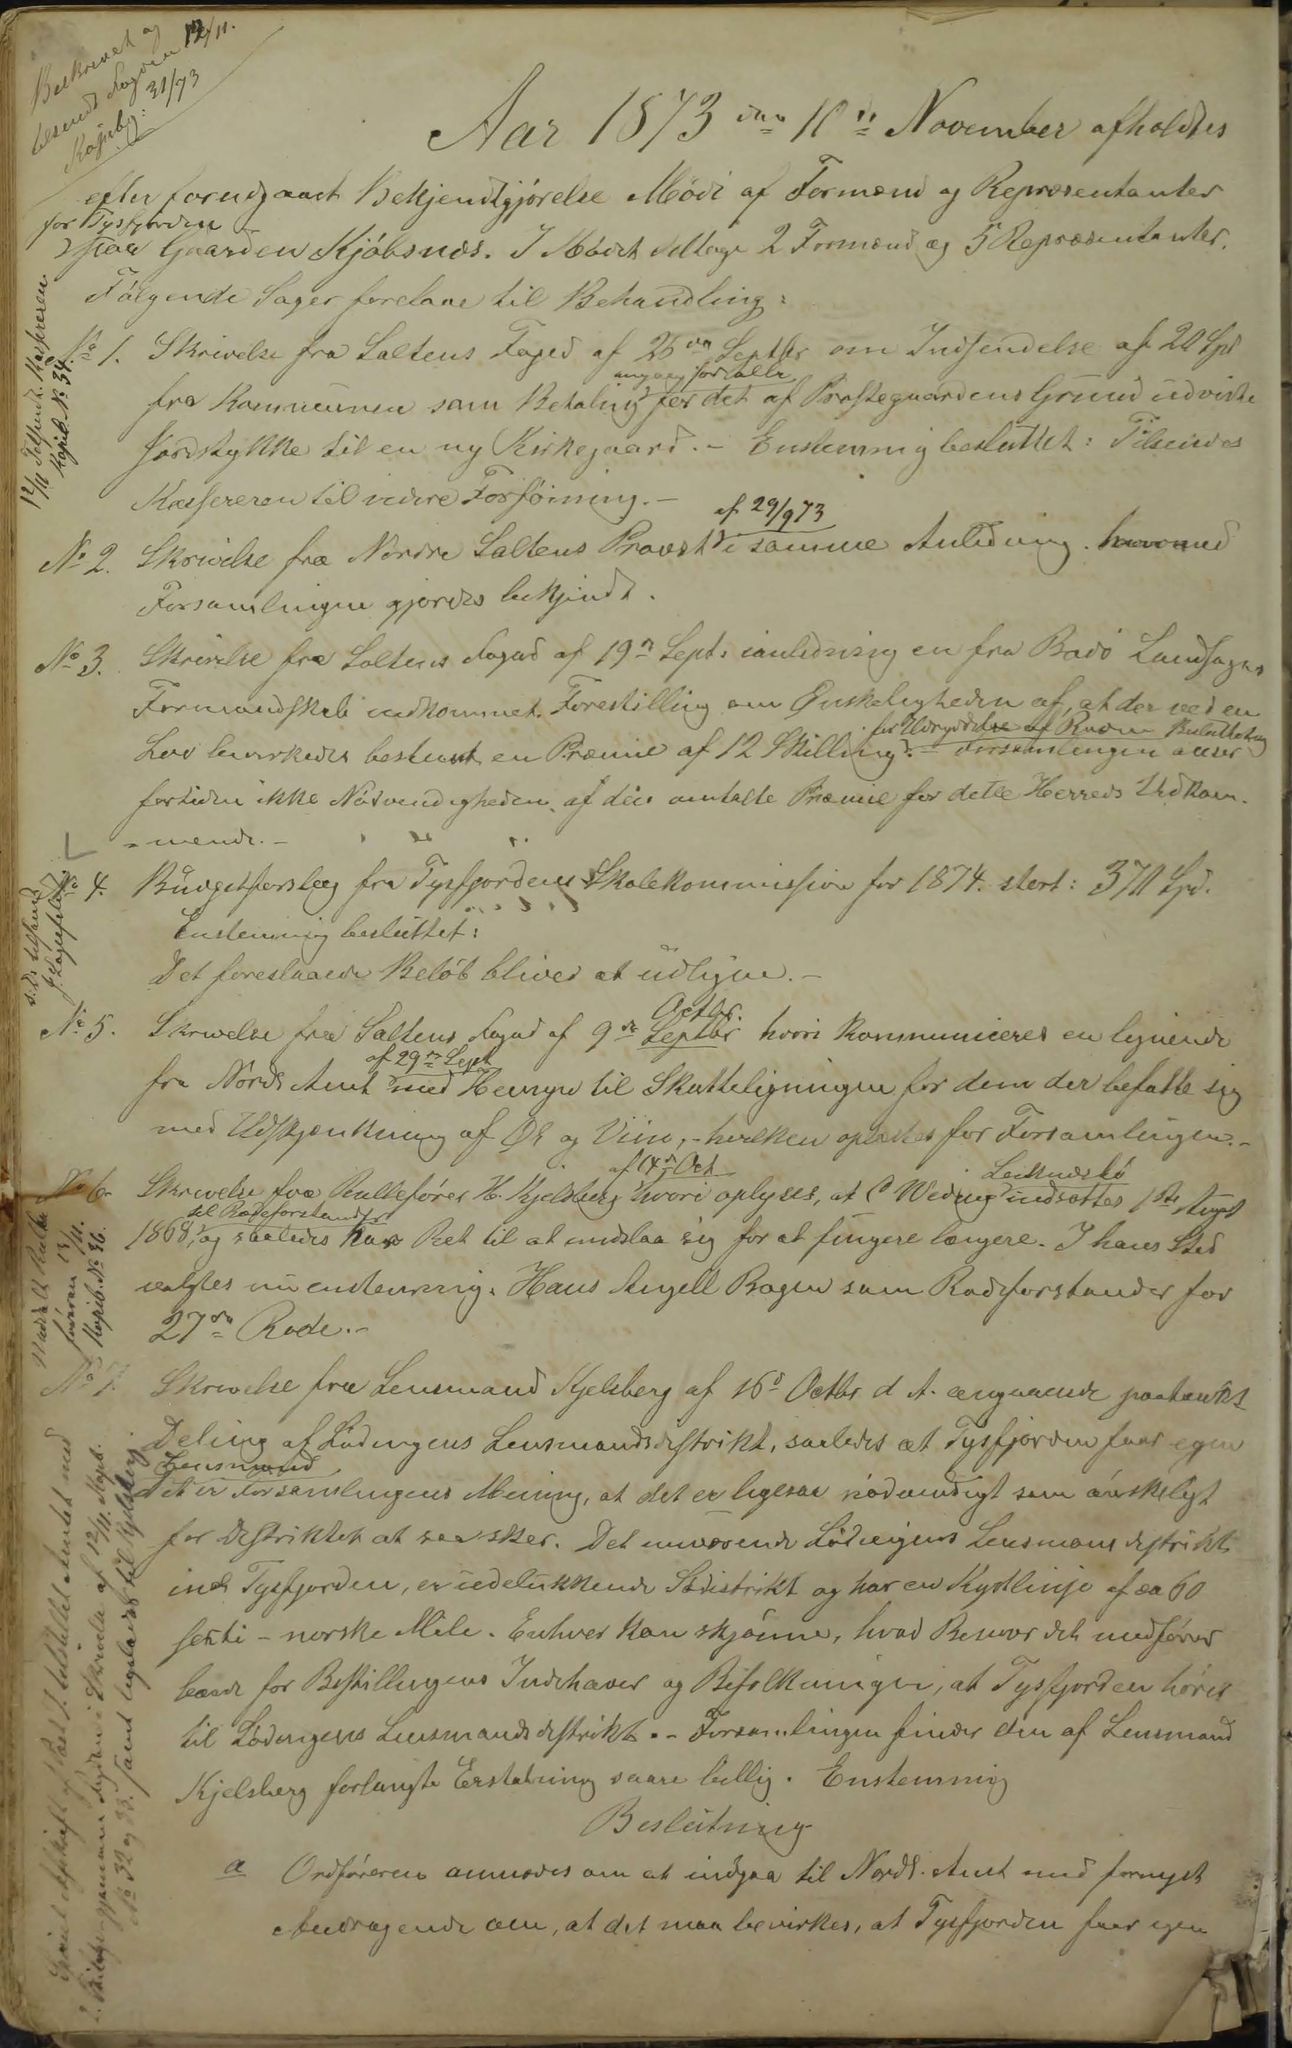 Beskrevet og
tilsendt Fogden 12/11.
Kopieb: 31/73
Aar 1873 den 10de November afholdtes
efter forudgaaet Bekjendtgjørelse Møde af Formænd og Repræsentanter
for Tysfjorden
paa Gaarden Kjøbsnæs. I Mødet deltoge 2 Formænd og 5 Repræsentanter.
Følgende Sager foretoges til Behandling:
12/11 Tilsendt Kassereren
Kopib. No 34.
No 1. Skrivelse fra Saltens Foged af 25de Septbr om Indsendelse af 20 Spd
fra Kommunen som Betaling for det af Præstegaardens Grund udviste
Jordstykke til en ny Kirkegaard. - Enstemmig besluttet: Tilsendes
Kassereren til videre Forføining. -
af 29/9 73
No 2. Skrivelse fra Nordre Saltens Provsti i samme Anledning. hvormed
Forsamlingen gjordes bekjendt.
No 3. Skrivelse fra Saltens Foged af 19de Sept: i anledning en fra Bodø Landsogns
Formandskab indkommet Forestilling om Ønskeligheden af, at der ved en
for Udryddelse af Ravne Besluttet
Lov bevirkedes bestemt en Præmie af 12 Skilling. - Forsamlingen anser
fortiden ikke Nødvendigheden af den omtalte Præmie for dette Herreds Vedkom-
-mende. -
s.D. tilsendt
No 4. Budgetforslag fra Tysfjordens Skolekommission for 1874. stort: 370 Spd.
Enstemmig besluttet:
Det foreslaaede Beløb bliver at udligne. -
Octbr.
No 5. Skrivelse fra Saltens Foged af 9de Septbr hvori kommuniceres en lignende
af 29de Sept
fra Nords Amt med Hensyn til Skatteligningen for dem der befatte sig
med Udskjænkning af Øl og Viin, - hvilken oplæstes for Forsamlingen. -
af 14de Oct
Meddelt Rulle
føreren 13/11.
Kopib. No 36.
No 6. Skrivelse fra Rullefører H. Kjelsberg hvori oplyses, at C Weding indsattes 1ste August
til Rodeforstander
1868, og saaledes har Ret til at undslaa sig for at fungere længere. I hans Sted
valgtes nu enstemmig. Hans Angell Bogen som Rodeforstander for
27de Rode. -
No 7. Skrivelse fra Lensmand Kjelsberg af 16de Octbr d A. angaaende paatænkt
Deling af Lødingens Lensmandsdistrikt, saaledes at Tysfjorden faar egen
Lensmand
Det er Forsamlingens Mening, at det er ligesaa nødvendigt som ønskeligt
for Distriktet at saa sker. Det nuværende Lødingens Lensmansdistrikt
incl Tysfjorden, er udelukkende Sødistrikt og har en Kystlinje af ca 60
sexti - norske Mile. Enhver kan skjønne, hvad Besvær det medfører
baade for Bestillingens Indehaver og Befolkningen, at Tysfjorden hører
til Lødingens Lensmandsdistrikt. - Forsamlingen finder den af Lensmand
Kjelsberg forlangte Erstatning saare billig. Enstemmig
Beslutning
a Ordføreren anmodes om at indgaa til Nordl. Amt med fornyet
Andragende om, at det maa bevirkes, at Tysfjorden faar egen
2. Bilage gjennem Fogden i Skrivelse af 12/11. Kopb.
No 32 og 33. samt